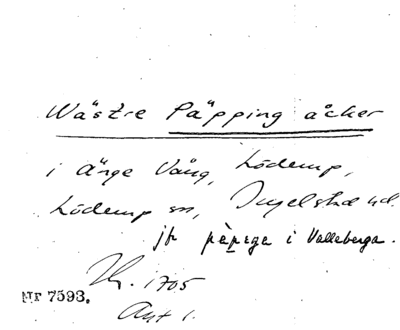 Wästre Päpping åcker
i änge Vång, Löderup,
Löderup sn, Ingelstad hd.
jfr pèpega i Valleberga.
1705
Nr 7593.
Akt 1.